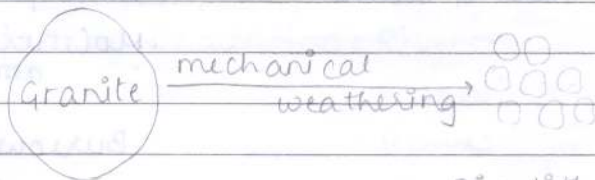 Granite
mechanical
weathering